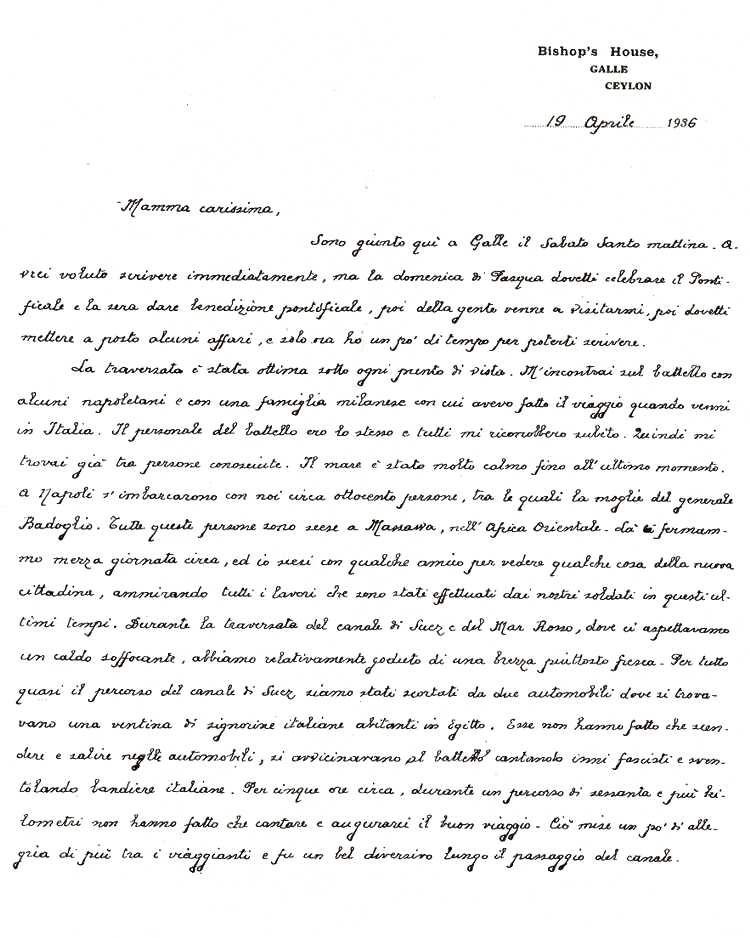 Bishop's House,
GALLE
CEYLON
19 Aprile 1936
Mamma carissima,
Sono giunto quì a Galle il Sabato Santo mattina. A-
vrei voluto scrivere immediatamente, ma la domenica di Pasqua dovetti celebrare il Ponti-
ficale e la sera dare benedizione pontificale, poi della gente venne a visitarmi, poi dovetti
mettere a posto alcuni affari, e solo ora ho un po' di tempo per poterti scrivere.
La traversata è stata ottima sotto ogni punto di vista. M'incontrai sul battello con
alcuni napoletani e con una famiglia milanese con cui avevo fatto il viaggio quando venni
in Italia. Il personale del battello era lo stesso e tutti mi riconobbero subito. Quindi mi
trovai già tra persone conosciute. Il mare è stato molto calmo fino all'ultimo momento.
A Napoli s'imbarcarono con noi circa ottocento persone, tra le quali la moglie del generale
Badoglio. Tutte queste persone sono scese a Massawa, nell'Africa Orientale. Là ci fermam-
mo mezza giornata circa, ed io scesi con qualche amico per vedere qualche cosa della nuova
cittadina, ammirando tutti i lavori che sono stati effettuati dai nostri soldati in questi ul-
timi tempi. Durante la traversata del canale di Suez e del Mar Rosso, dove ci aspettavamo
un caldo soffocante, abbiamo relativamente goduto di una brezza piuttosto fresca. Per tutto
quasi il percorso del canale di Suez siamo stati scortati da due automobili dove si trova-
vano una ventina di signorine italiane abitanti in Egitto. Esse non hanno fatto che scen-
dere e salire nelle automobili, si avvicinavano al battello cantando inni fascisti e sven-
tolando bandiere italiane. Per cinque ore circa, durante un percorso di sessanta e più ki-
lometri non hanno fatto che cantare e augurarci il buon viaggio. Ciò mise un po' di alle-
gria di più tra i viaggianti e fu un bel diversivo lungo il passaggio del canale.